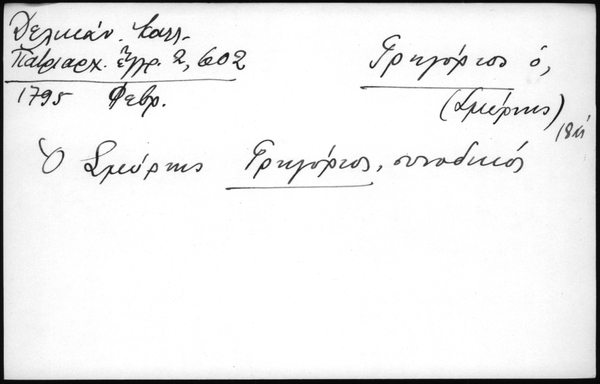 Δελικάν. Καλλ.
Πατριαρχ. ἔγγρ. 2, 602
1795 Φεβρ.
Γρηγόριος ὁ,
(Σμύρνης)
Ὁ Σμύρνης Γρηγόριος, συνοδικός